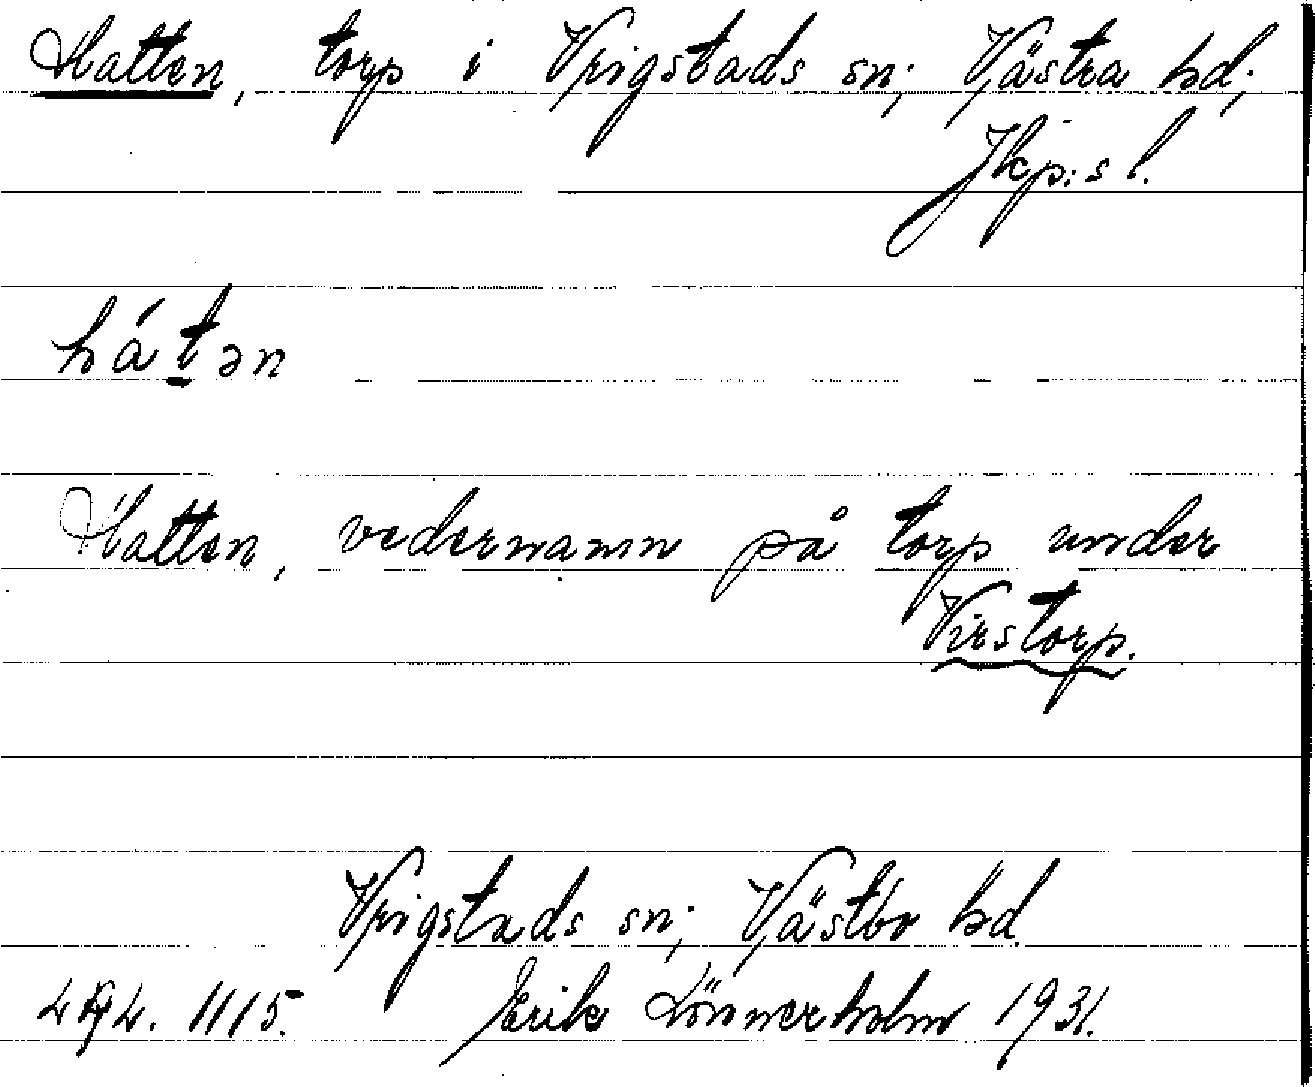 Hatten, torp i Vrigstads sn; Västra hd;
Jkp:s l.
hátən
Hatten, vedernamn på torp under
Virstorp.
Vrigstads sn; Västbo hd.
1115. Erik Lönnerholm 1931.